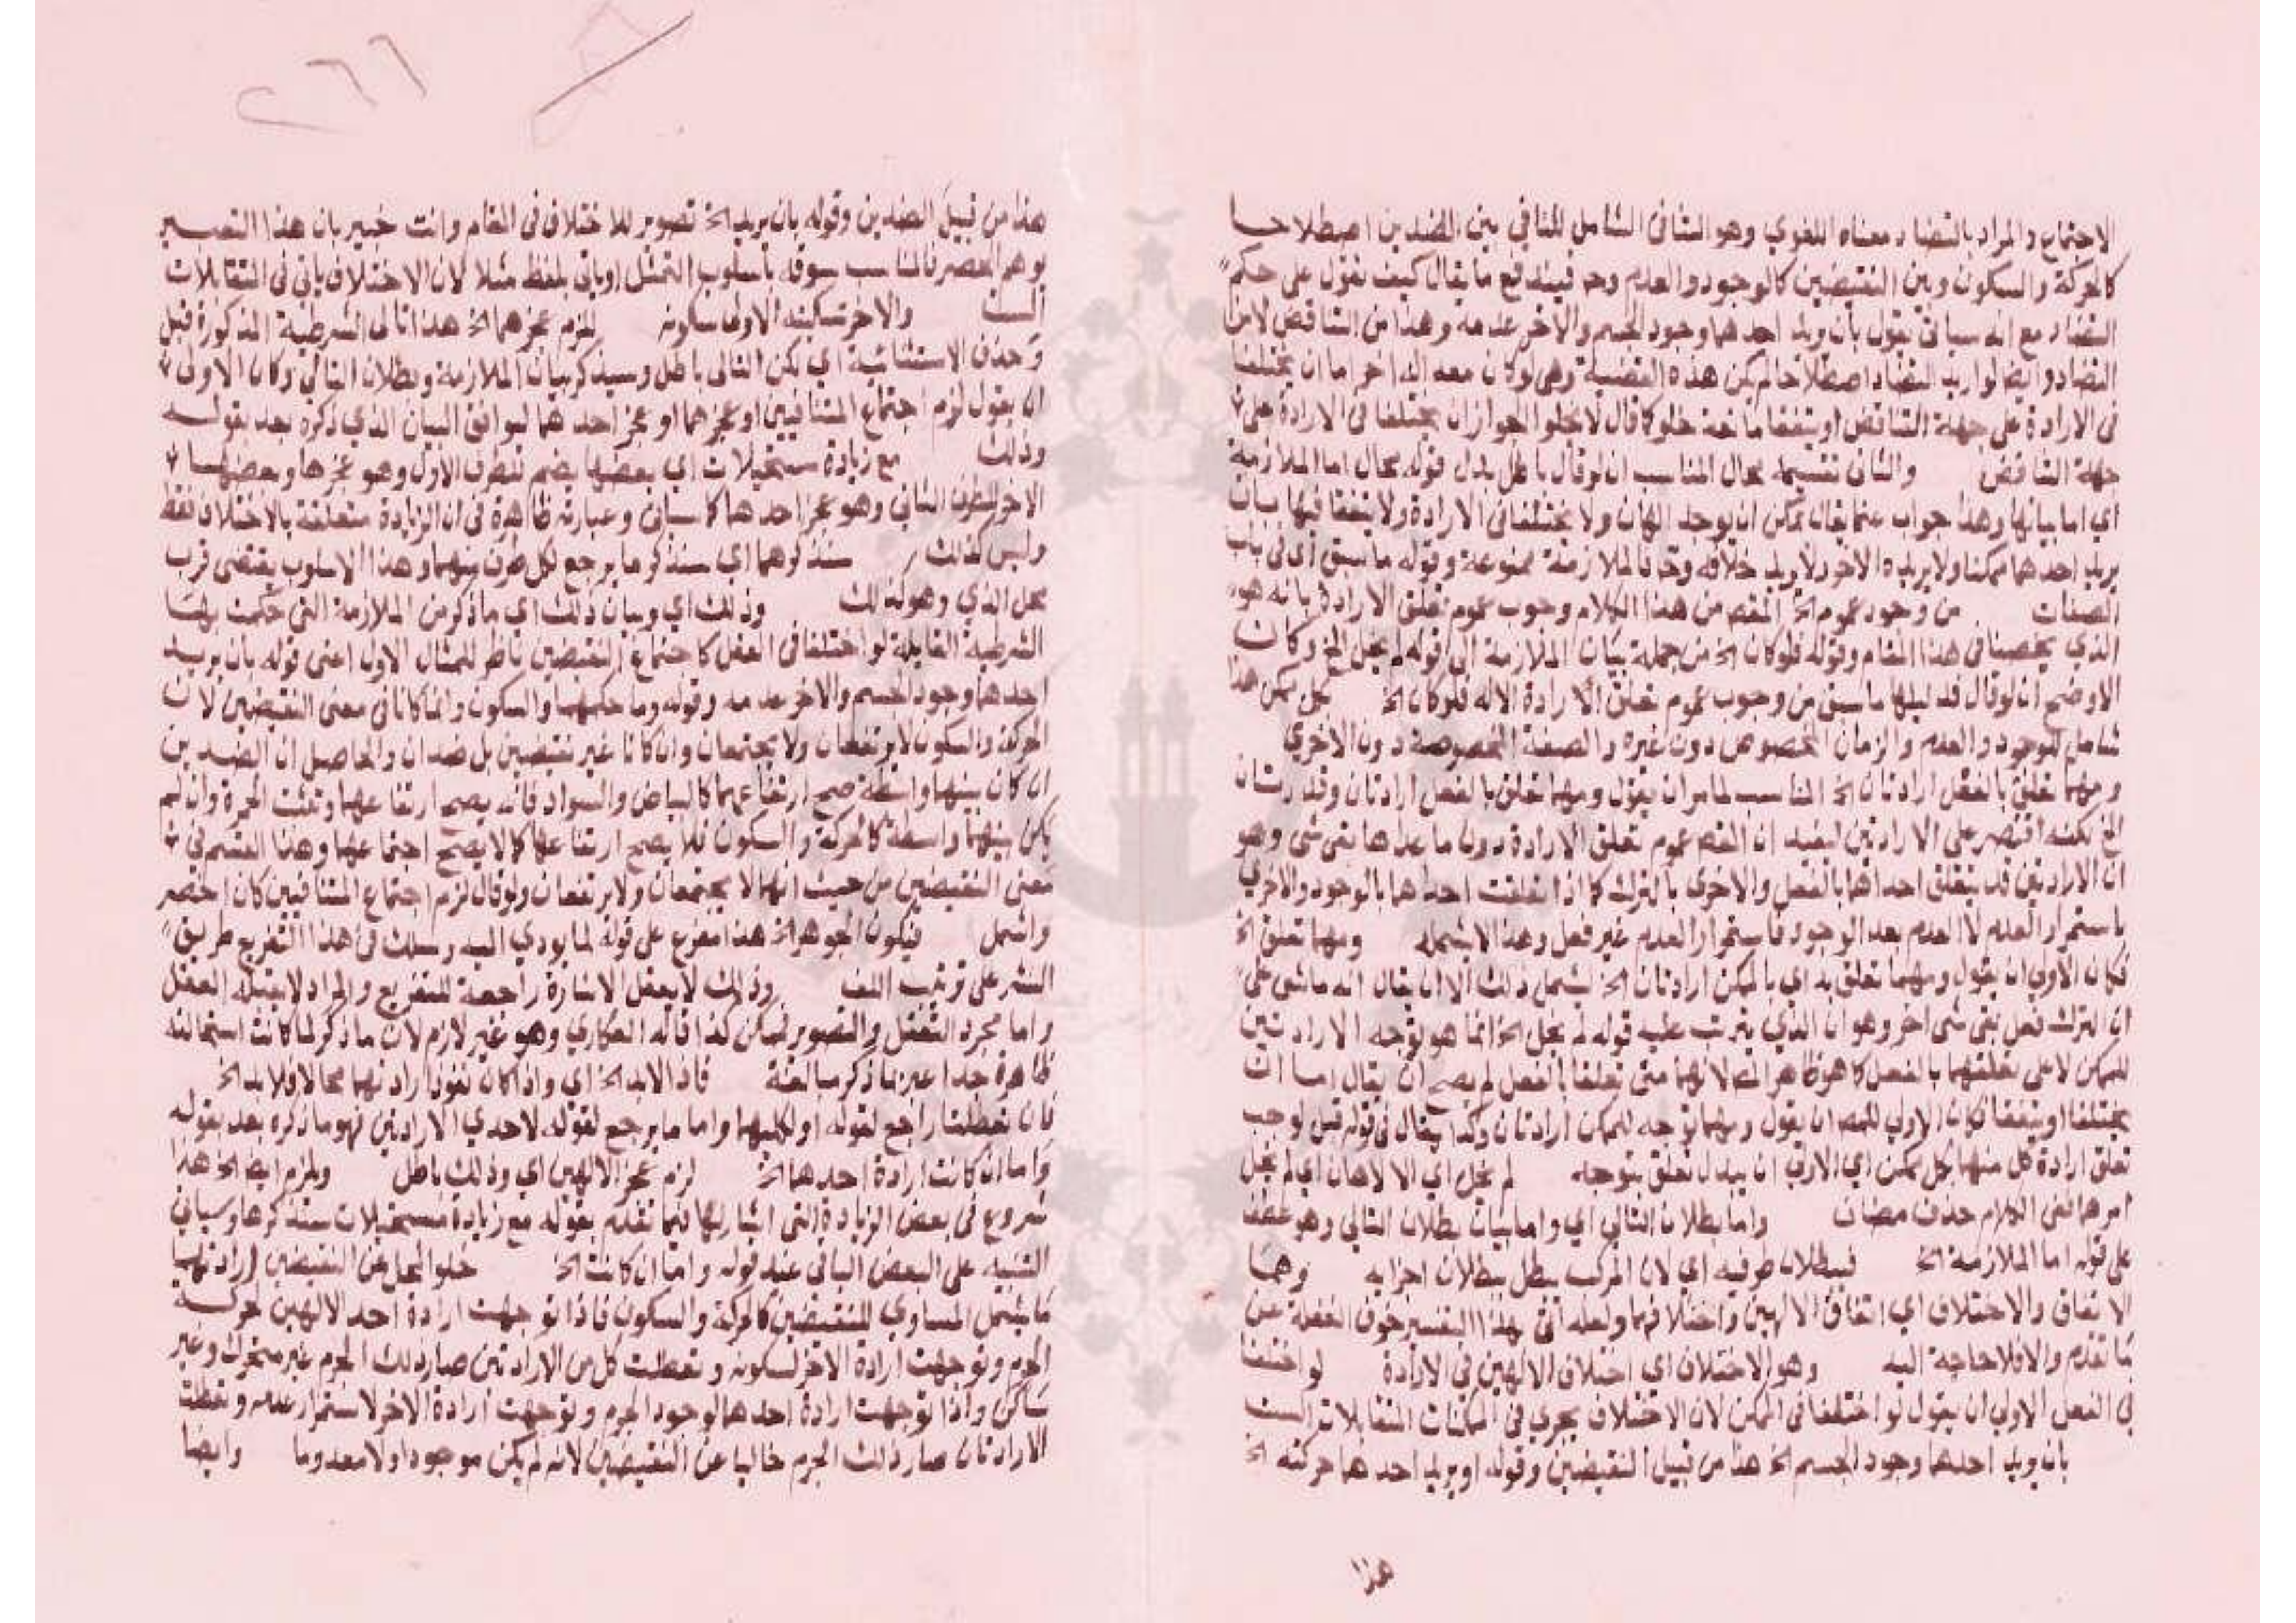 الاجتماع والمراد بالتضاد معناه اللغوي وهو التنافي الشامل للتنافي بين الضدين اصطلاحا
كالحركة والسكون وبين النقيضين كالوجود والعدم وحـ فيندفع ما يقال كيف نقول على حكم
التضاد مع انه سيأتي يقول بأن يريد احدهما وجود الجسم والاخر عدمه وهذا من التناقض لا من
التضاد وايضا لو اريد التضاد اصطلاحا لم يكن هذه القضية وهي لو كان معه اله اخر اما ان يختلفا
في الارادة على جهة التناقض او يتفقا مانعة خلو كما قال لا يخلو الجواز ان يختلفا في الارادة على
جهة التناقض والثاني بقسميه محال المناسب ان لو قال باطل بدل قوله محال اما الملازمة
اي اما بيانها وهذا جواب عما يقال يمكن ان يوجد الهان ولا يختلفا في الارادة ولا يتفقا فيها بان
يريد احدهما ممكنا ولا يريده الاخر ولا يريد خلافه وحـ فالملازمة ممنوعة وقوله ما سبق اي في باب
الصفات من وجود عموم الخ المقصد من هذا الكلام وجوب عموم تعلق الارادة بانه هو
الذي يخصنا في هذا المقام وقوله فلو كان الخ من جملة بيان الملازمة الى قوله لم يخل الخ وكان
الاوضح ان لو قال فدليلها ما سبق من وجوب عموم تعلق الارادة الاله فلو كان الخ كل ممكن هذا
شامل للوجود والعدم والزمان المخصوص دون غيره والصفة المخصوصة دون الاخرى
ومهما تعلق بالفعل ارادتان الخ المناسب لما مر ان يقول ومهما تعلق بالفعل ارادتان وقدرتان
الخ لكنه اقتصر على الارادتين ليفيد ان القصد عموم تعلق الارادة دون ما عداها بقي شي وهو
ان الارادتين قد يتعلق احداهما بالفعل والاخرى بالترك كما اذا تعلقت احداهما بالوجود والاخرى
باستمرار العدم لا العدم بعد الوجود فاستمرار العدم غير فعل وهذا لا يشمله ومهما تعلق الخ
فكان الاولى ان يقول ومهما تعلق به اي بالممكن ارادتان الخ ليشمل ذلك الا ان يقال انه ماشى على
ان الترك فعل بقي شي اخر وهو ان الذي يترتب عليه قوله لم يخل الخ انما هو توجه الارادتين
للممكن لا على تعلقهما بالفعل كما هو ظاهر لانهما متى تعلقا بالفعل لم يصح ان يقال اما ان
يختلفا او يتفقا فكان الاولى للمصـ ان يقول ومهما توجه للممكن ارادتان وكذا يقال في قوله قبل لوجب
تعلق ارادة كل منهما بكل ممكن اي الاولى ان يبدل تعلق بتوجه لم يخل اي الالاهان اي لم يخل
امرهما ففي الكلام حذف مضاف واما بطلان التالي اي واما بيان بطلان التالي وهو عطف
على قوله اما الملازمة الخ فبطلان طرفيه اي لان المركب يبطل ببطلان اجزايه وهما
الاتفاق والاختلاف اي اتفاق الالهين واختلافهما ولعله اتى بهذا التفسير خوف الغفلة عن
ما تقدم والا فلا حاجة اليه وهو الاختلاف اي اختلاف الالهين في الارادة لو اختلفا
في الفعل الاولى ان يقول لو اختلفا في الممكن لان الاختلاف يجري في الممكنات المتقابلات الست
بان يريد احدهما وجود الجسم الخ هذا من قبيل النقيضين وقوله او يريد احدهما حركته الخ
هذا
هذا من قبيل الضدين وقوله بان يريد الخ تصوير للاختلاف في المقام وانت خبير بان هذا التفسير
يوهم الحصر فالمناسب سوقه بأسلوب التمثيل او يأتي بلفظ مثلا لان الاختلاف يأتي في المتقابلات
الست والاخر تسكينه الاولى سكونه لزم عجزهما الخ هذا تالى الشرطية المذكورة قبل
وحذف الاستثنائية اي لكن التالي باطل وسيذكر بيان الملازمة وبطلان التالي وكان الاولى
ان يقول لزم اجتماع المتنافيين او عجزهما او عجز احدهما ليوافق البيان الذي ذكره بعد بقوله
وذلك مع زيادة مستحيلات اي بعضها يضم للطرف الاول وهو عجزهما وبعضها
الاخر للطرف الثاني وهو عجز احدهما كما سيأتي وعبارته ظاهرة في ان الزيادة متعلقة بالاختلاف فقط
وليس كذلك سنذكرهما اي سنذكر ما يرجع لكل طرف منهما وهذا الاسلوب يقتضي قرب
محل الذي وهو كذلك وذلك اي وبيان ذلك اي ما ذكر من الملازمة التي حكمت بها
الشرطية القايلة لو اختلفا في الفعل كاجتماع النقيضين ناظر للمثال الاول اعني قوله بان يريد
احدهما وجود الجسم والاخر عدمه وقوله وما حكمهما والسكون وانما كانا في معنى النقيضين لان
الحركة والسكون لا يرتفعان ولا يجتمعان وان كانا غير نقيضين بل ضدان والحاصل ان الضدين
ان كان بينهما واسطة صح ارتفاعهما كالبياض والسواد فانه يصح ارتفاعهما وتثبت الحمرة وان لم
يكن بينهما واسطة كالحركة والسكون فلا يصح ارتفاعهما كما لا يصح اجتماعهما وهذا القسم في
معنى النقيضين من حيث انهما لا يجتمعان ولا يرتفعان ولو قال لزم اجتماع المتنافيين كان اخصر
واشمل فيكون الجوهر الخ هذا مفرع على قوله لما يودي اليه وسلك في هذا التفريع طريق
النشر على ترتيب اللف وذلك لا يعقل الاشارة راجعة للتفريع والمراد لا يقبله العقل
واما مجرد التعقل والتصوير لممكن كذا قاله العكاري وهو غير لازم لان ما ذكر لما كانت استحالته
ظاهرة جدا عبر بما ذكر مبالغة فاذ الابد الخ اي واذا كان نفوذ ارادتهما محالا فلا بد الخ
فان تعطلتا راجع لقوله او لكليهما واما ما يرجع لقوله لاحدى الارادتين فهو ما ذكره بعد بقوله
واما ان كانت ارادة احدهما الخ لزم عجز الالهين اي وذلك باطل ويلزم ايضا الخ هذا
شروع في بعض الزيادة التي اشار لها فيما تقدم بقوله مع زيادة مستحيلات سنذكرها وسيأتي
التنبيه على البعض الباقي عند قوله واما ان كانت الخ خلو المحل عن النقيضين اراد بهما
ما يشمل المساوي للنقيضين كالحركة والسكون فاذا توجهت ارادة احد الالهين لحركة
الجرم وتوجهت ارادة الاخر لسكونه وتعطلت كل من الارادتين صار ذلك الجرم غير متحرك وغير
ساكن واذا توجهت ارادة احدهما لوجود الجرم وتوجهت ارادة الاخر لاستمرار عدمه وتعطلت
الارادتان صار ذلك الجرم خاليا عن النقيضين لانه لم يكن موجودا ولا معدوما وايضا